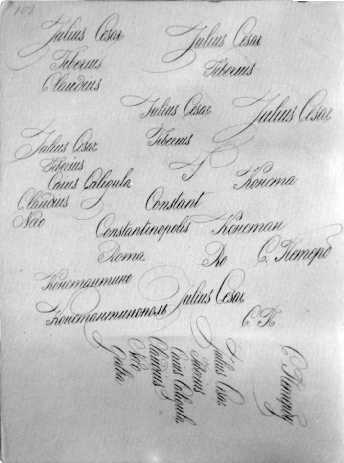 Julius Cesar
Julius Cesar
Tiberius
Tiberius
Claudius
Julius Cesar
Julius Cesar
Tiberius
Julius Cesar
Tiberius
Caius Caligula
Конста
Claudius
Constant
Nero
Constantinopolis
Констан
Roma
Ro
С. Петерб
Константино
Julius Cesar
Константинополь
С. П
Julius Cesar
Tiberius
Caius Caligula
Claudius
Nero
Galba